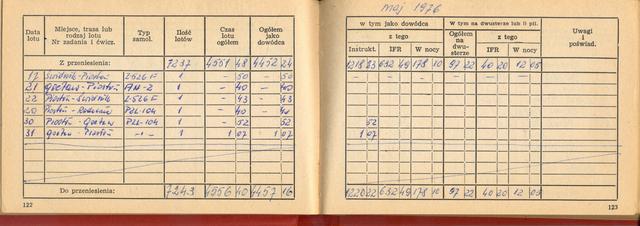 maj 1976
Data lotu
Miejsce, trasa lub rodzaj lotu Nr zadania i ćwicz.
Typ samol.
Ilość lotów
Czas lotu ogółem
Ogółem jako dowódca
w tym jako dowódca
W tym na dwusterze lub II pil.
Uwagi i poświad.
z tego
Ogółem na dwusterze
z tego
Instrukt.
IFR
W nocy
IFR
W nocy
Z przeniesienia: 7237 4551 48 4452 24 1218 23 632 49 178 10 97 22 40 20 12 05
17 Świdnik-Piastów Z-526 F 1 - 50 - 50
21 - Piastów AN-2 1 - 40 - 40
22 Piastów-Świdnik Z-526 F 1 - 43 - 43
PZL-104 1 - 40 - 40
30 Piastów - PZL-104 1 - 52 52 52
31 - Piastów -"- 1 1 07 1 07 1 07
Do przeniesienia: 7243 4556 40 4457 16 1220 22 632 49 178 10 97 22 40 20 12 05
122
123